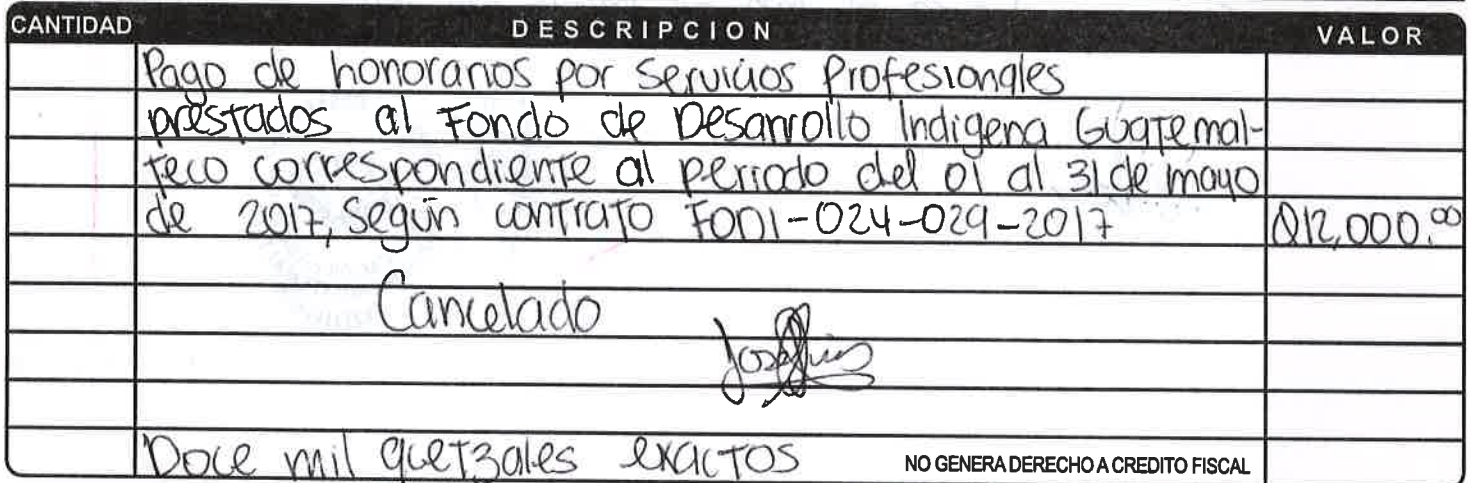 CANTIDAD DESCRIPCION VALOR
Pago de honorarios por Servicios Profesionales
prestados al Fondo de Desarrollo Indigena Guatemal-
teco correspondiente al periodo del 01 al 31 de mayo
de 2017, Según contrato FODI-024-029-2017 Q12,000.00
Cancelado
Doce mil quetzales exactos NO GENERA DERECHO A CREDITO FISCAL